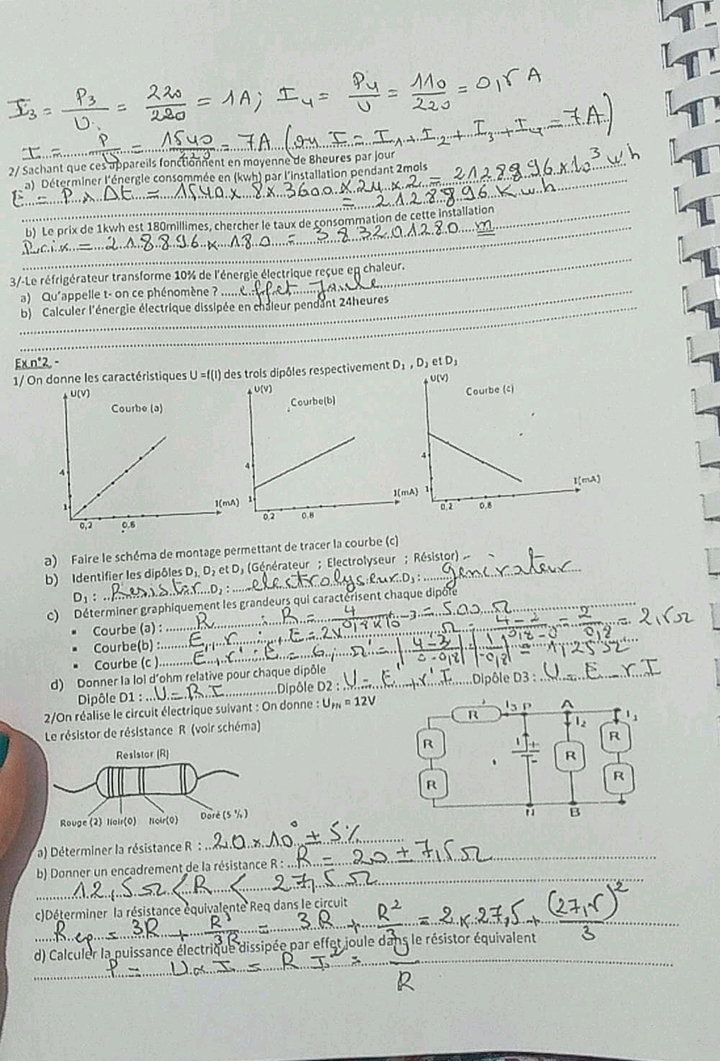 I₃ = P₃/U = 220/220 = 1A ; I₄ = P₄/U = 110/220 = 0,5 A
I = P/U = 1540/220 = 7A (ou I = I₁ + I₂ + I₃ + I₄ = 7A)
2/ Sachant que ces appareils fonctionnent en moyenne de 8heures par jour
a) Déterminer l'énergie consommée en (kwh) par l'installation pendant 2mols
E = P x Δt = 1540 x 8 x 3600 x 24 x 2 = 2128896 x 10³ wh
= 2128896 Kwh
b) Le prix de 1kwh est 180millimes, chercher le taux de consommation de cette installation
Prix = 218896 x 180 = 383201280 m
3/-Le réfrigérateur transforme 10% de l'énergie électrique reçue en chaleur.
a) Qu'appelle t- on ce phénomène ? effet Joule
b) Calculer l'énergie électrique dissipée en chaleur pendant 24heures
Ex n°2 -
1/ On donne les caractéristiques U =f(I) des trois dipôles respectivement D₁ , D₂ et D₃
U(V) U(V) U(V)
Courbe (a) Courbe(b) Courbe (c)
4 4 4
1 1 1
I(mA) I(mA) I(mA)
0,2 0,8 0,2 0,8 0,2 0,8
a) Faire le schéma de montage permettant de tracer la courbe (c)
b) Identifier les dipôles D₁, D₂ et D₃ (Générateur ; Electrolyseur ; Résistor)
D₁ : Resistor D₂ : electrolyseur D₃ : générateur
c) Déterminer graphiquement les grandeurs qui caractérisent chaque dipôle
▪ Courbe (a) : R ; R = 4/0,8x10⁻³ = 500 Ω
▪ Courbe(b) : E, r ; E = 2V 4-2/0,8-0 = 2/0,8 = 2,5Ω
▪ Courbe (c ) E, r' : E = 6 ; = 1,25
d) Donner la loi d'ohm relative pour chaque dipôle
Dipôle D1 : U = R.I Dipôle D2 : U = E + r'I Dipôle D3 : U = E - rI
2/On réalise le circuit électrique suivant : On donne : U_PN = 12V
Le résistor de résistance R (voir schéma)
Resistor (R)
R I₃ P A I₁
R I + I₂ R
- R
R R
N B
Rouge (2) Noir(0) Noir(0) Doré (5 %)
a) Déterminer la résistance R : 20 x 10⁰ ± 5%
b) Donner un encadrement de la résistance R : R = 20 ± 7,5 Ω
12,5 Ω < R < 27,5 Ω
c)Déterminer la résistance équivalente Req dans le circuit
Req = 3R + R²/3R = 3R + R²/3 = 2 x 27,5 + (27,5)²/3
d) Calculer la puissance électrique dissipée par effet joule dans le résistor équivalent
P = U x I = R I² = U/R